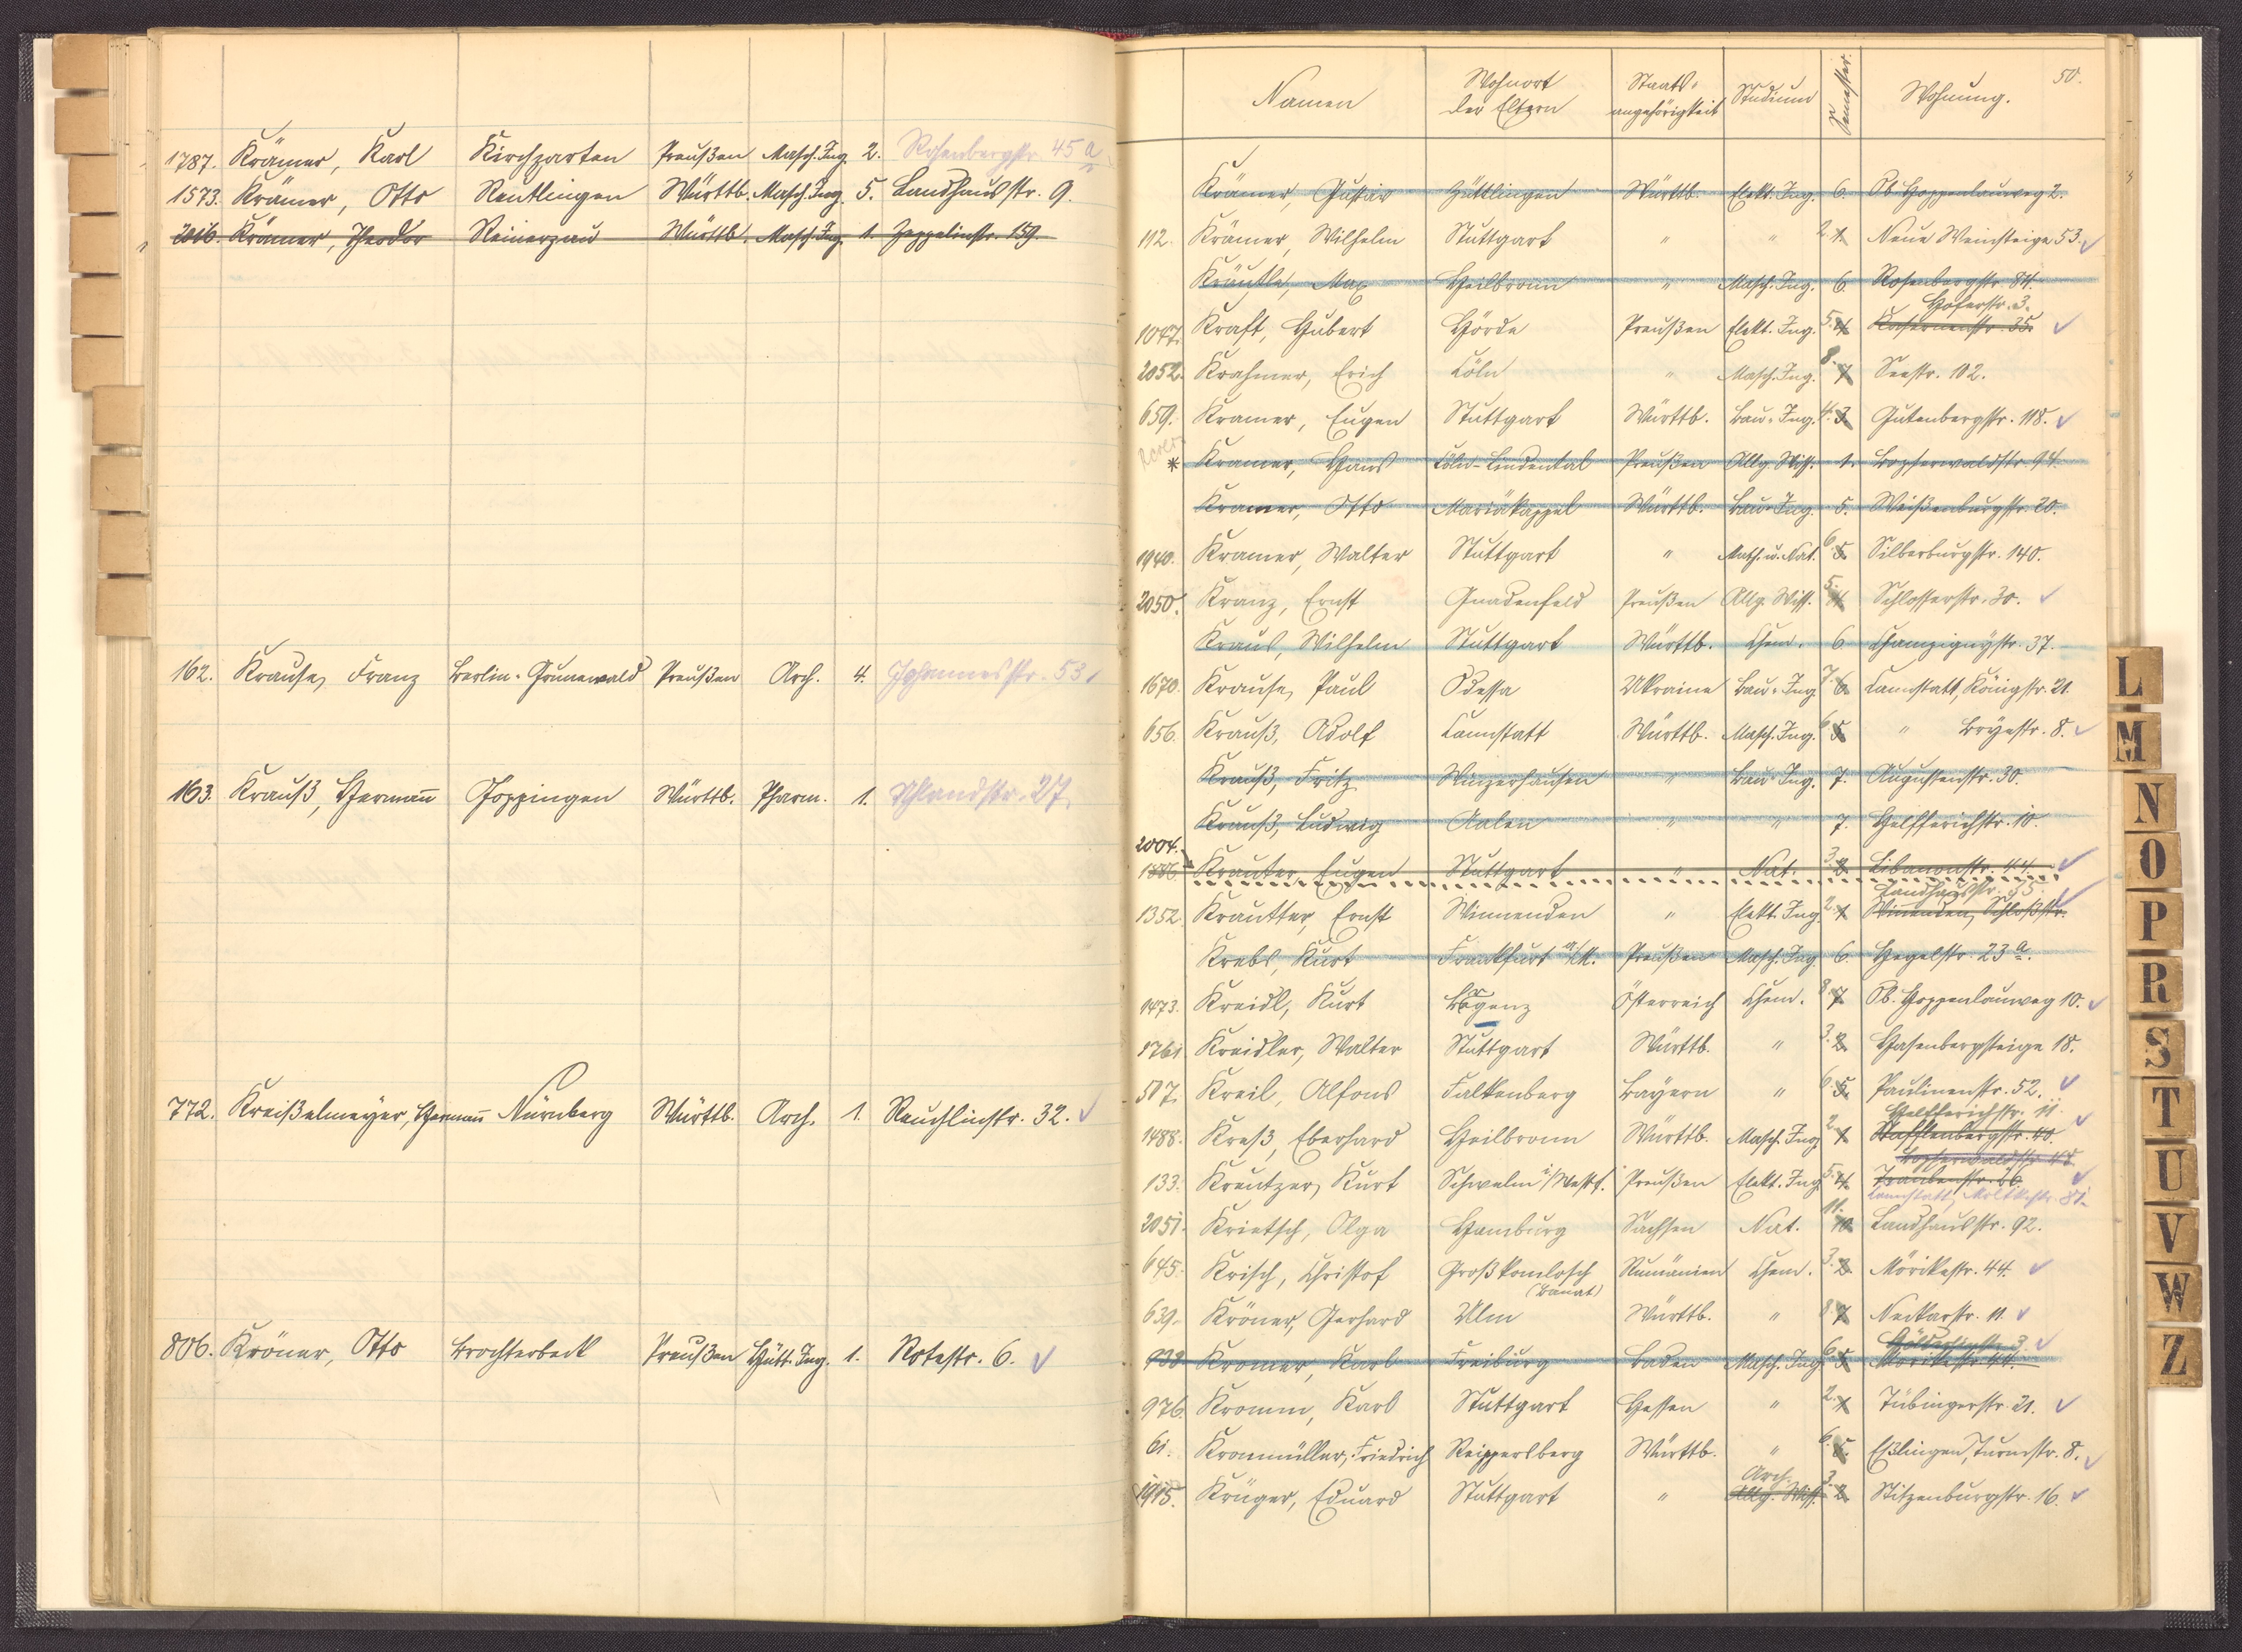 1787. Krämer, Karl Kirchzarten Preußen Masch. Ing. 2. Rosenbergstr. 45 a
1573. Krämer, Otto Reutlingen Württb. Masch. Ing. 5. Landhausstr. 9.
2016. Krämer, Theodor Reinerzau Württb. Masch. Ing. 1. Zeppelinstr. 159.
162. Krause, Franz Berlin-Grunewald Preußen Arch. 4. Johannesstr. 53.
163. Krauß, Hermann Göppingen Württb. Pharm. 1. Uhlandstr. 27.
772. Kreißelmeyer, Hermann Nürnberg Württb. Arch. 1. Reuchlinstr. 32.
806. Kröner, Otto Brochterbeck Preußen Hütt. Ing. 1. Rotestr. 6.
50.
Namen Wohnort der Eltern Staatsangehörigkeit Studium Semester. Wohnung.
Krämer, Gustav Güttlingen Württb. Elekt. Ing. 6. Ob. Hoppenlauweg 2.
112. Krämer, Wilhelm Stuttgart " " 2. 1. Neue Weinsteige 53.
Kräutle, Max Heilbronn " Masch. Ing. 6. Rosenbergstr. 84.
Hoferstr. 3.
1047. Kraft, Hubert Hörde Preußen Elekt. Ing. 5. 4. Kasernenstr. 35.
2052. Krahmer, Erich Cöln " Masch. Ing. 8. 7. Seestr. 102.
659. Kramer, Eugen Stuttgart Württb. Bau-Ing. 4. 3. Gutenbergstr. 118.
* Kramer, Hans Cöln-Lindental Preußen Allg. Wiss. 1. Bopserwaldstr. 94.
Kramer, Otto Mariäkappel Württb. Bau-Ing. 5. Weißenburgstr. 20.
1940. Kramer, Walter Stuttgart " Math. u. Nat. 6. 5. Silberburgstr. 140.
2050. Kranz, Ernst Gnadenfeld Preußen Allg. Wiss. 5. 4. Schlosserstr. 30.
Kraus, Wilhelm Stuttgart Württb. Chem. 6. Champignystr. 37.
1670. Krause, Paul Odessa Ukraine Bau-Ing. 7. 6. Cannstatt, Königstr. 21.
656. Krauß, Adolf Cannstatt Württb. Masch. Ing. 6. 5. " Bryestr. 8.
Krauß, Fritz Winzerhausen " Bau-Ing. 7. Augustenstr. 30.
Krauß, Ludwig Aalen " " 7. Helfferichstr. 10.
2004.
1886. Krauter, Eugen Stuttgart " Nat. 3. 2. Libanonstr. 44.
Landhausstr. 35.
1352. Krautter, Ernst Winnenden " Elekt. Ing. 2. 1. Winnenden, Schloßstr.
Krebs, Kurt Frankfurt a/M. Preußen Masch. Ing. 6. Hegelstr. 23 a.
1473. Kreidl, Kurt Bregenz Österreich Chem. 8. 7. Ob. Hoppenlauweg 10.
1761 Kreidler, Walter Stuttgart Württb. " 3. 2. Hasenbergsteige 18.
507. Kreil, Alfons Falkenberg Bayern " 6. 5. Paulinenstr. 52.
Helfferichstr. 11.
1488. Kreß, Eberhard Heilbronn Württb. Masch. Ing. 2. 1. Stafflenbergstr. 40.
Bopserwaldstr. 48.
133. Kreutzer, Kurt Schwelm i/Westf. Preußen Elekt. Ing. 5. 4. Traubenstr. 56.
Cannstatt, Moltkestr. 81.
2051. Krietsch, Olga Hamburg Sachsen Nat. 11. 10. Landhausstr. 92.
645. Krisch, Christof Großkomlosch (Banat) Rumänien Chem. 3. 2. Mörikestr. 44.
639. Kröner, Gerhard Ulm Württb. " 8. 7. Neckarstr. 11.
Hölderlinstr. 3.
938 Kromer, Karl Freiburg Baden Masch. Ing. 6. 5. Mörikestr. 44.
976. Kromm, Karl Stuttgart Hessen " 2. 1. Tübingerstr. 21.
61. Kronmüller, Friedrich Reippersberg Württb. " 6. 5. Eßlingen, Turmstr. 8.
Arch.
1915. Krüger, Eduard Stuttgart " Allg. Wiss. 3. 2. Stitzenburgstr. 16.
L
M
N
O
P
R
S
T
U
V
W
Z